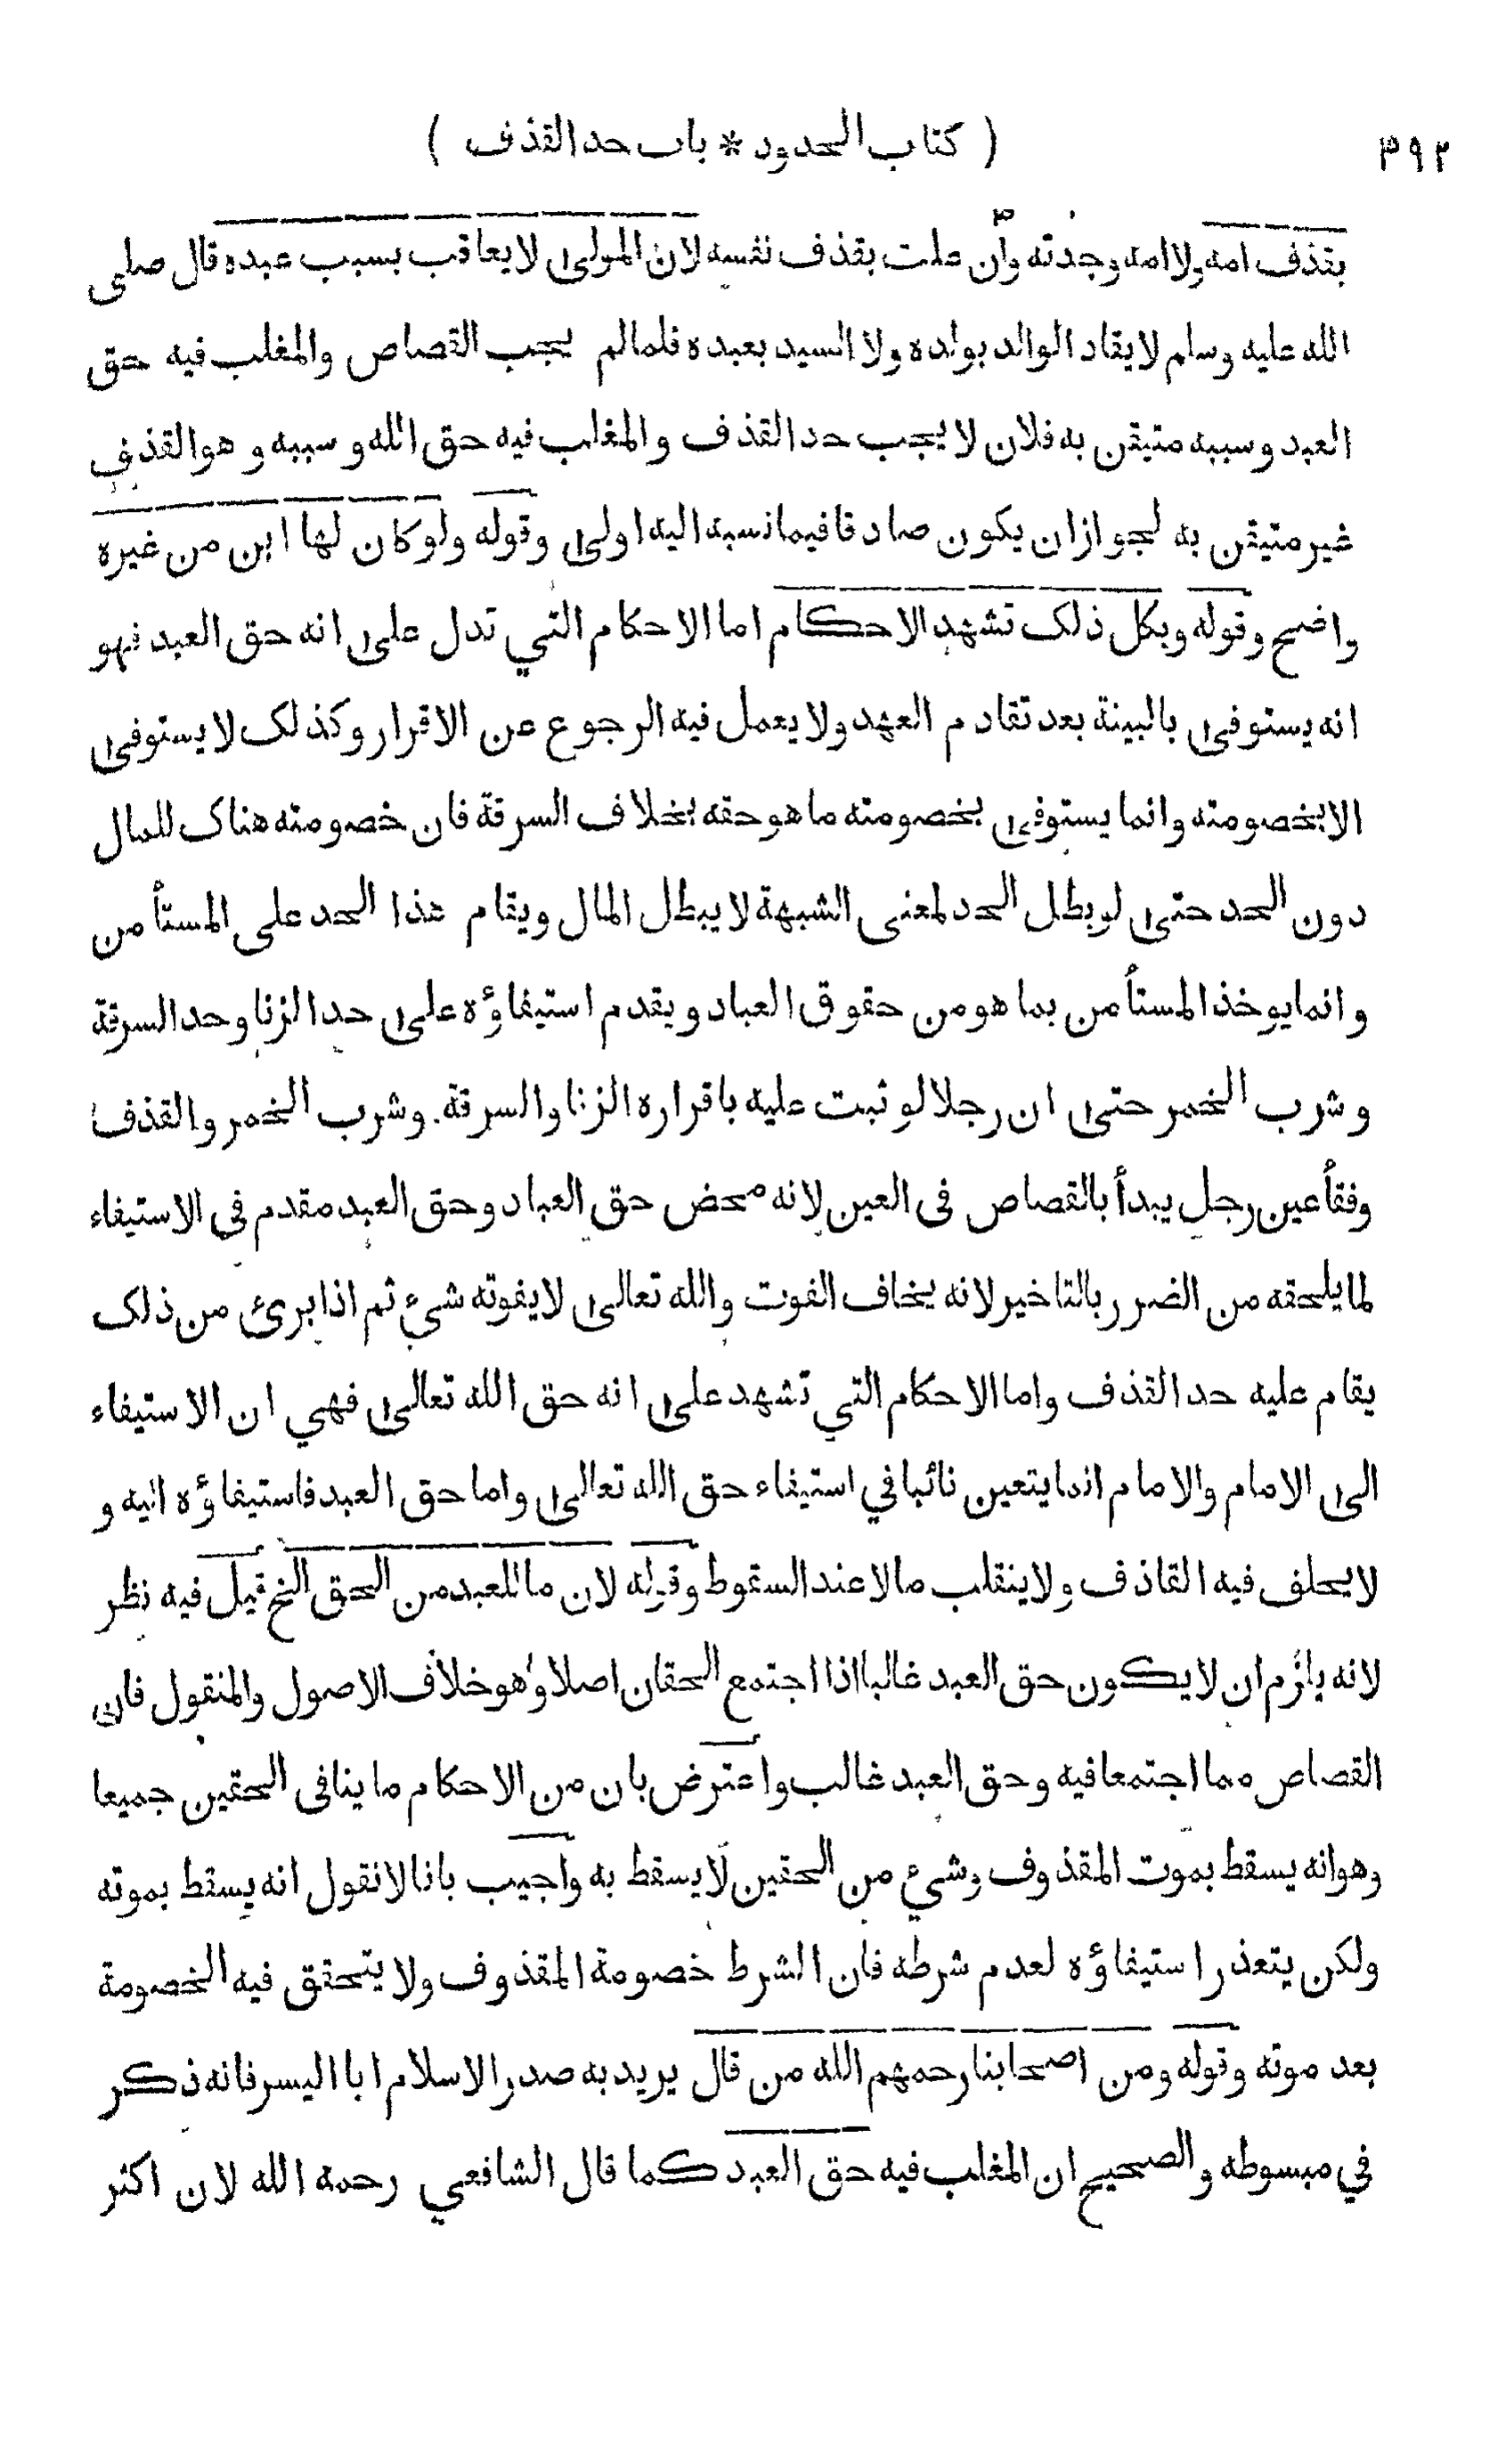 ٣٩٢
( كتاب الحدود * باب حد القذف )
بقذف امه ولا امه وجدته وأن علت بقذف نفسه لان المولى لا يعاقب بسبب عبده قال صلى
الله عليه وسلم لا يقاد الوالد بولده ولا السيد بعبده فلما لم يجب القصاص والمغلب فيه حق
العبد وسببه متيقن به فلان لا يجب حد القذف والمغلب فيه حق الله وسببه وهو القذف
غير متيقن به لجواز ان يكون صادقا فيما نسبه اليه اولى وقوله ولو كان لها ابن من غيره
واضح وقوله وبكل ذلك تشهد الاحكام اما الاحكام التي تدل على انه حق العبد فهو
انه يستوفى بالبينة بعد تقادم العهد ولا يعمل فيه الرجوع عن الاقرار وكذلك لا يستوفى
الا بخصومته وانما يستوفى بخصومته ما هو حقه بخلاف السرقة فان خصومته هناك للمال
دون الحد حتى لو بطل الحد لمعنى الشبهة لا يبطل المال ويقام هذا الحد على المستأمن
وانما يوخذ المستأمن بما هو من حقوق العباد ويقدم استيفاؤه على حد الزنا وحد السرقة
وشرب الخمر حتى ان رجلا لو ثبت عليه باقراره الزنا والسرقة وشرب الخمر والقذف
وفقأ عين رجل يبدأ بالقصاص فى العين لانه محض حق العباد وحق العبد مقدم في الاستيفاء
لما يلحقه من الضرر بالتاخير لانه يخاف الفوت والله تعالى لا يفوته شيء ثم اذا برئ من ذلك
يقام عليه حد القذف واما الاحكام التي تشهد على انه حق الله تعالى فهي ان الاستيفاء
الى الامام والامام انما يتعين نائبا في استيفاء حق الله تعالى واما حق العبد فاستيفاؤه اليه و
لا يحلف فيه القاذف ولا ينقلب مالا عند السقوط وقوله لان ما للعبد من الحق الخ قيل فيه نظر
لانه يلزم ان لا يكون حق العبد غالبا اذا اجتمع الحقان اصلا وهو خلاف الاصول والمنقول فان
القصاص مما اجتمعا فيه وحق العبد غالب واعترض بان من الاحكام ما ينافى الحقين جميعا
وهو انه يسقط بموت المقذوف وشيء من الحقين لا يسقط به واجيب بانا لا نقول انه يسقط بموته
ولكن يتعذر استيفاؤه لعدم شرطه فان الشرط خصومة المقذوف ولا يتحقق فيه الخصومة
بعد موته وقوله ومن اصحابنا رحمهم الله من قال يريد به صدر الاسلام ابا اليسر فانه ذكر
في مبسوطه والصحيح ان المغلب فيه حق العبد كما قال الشافعي رحمه الله لان اكثر